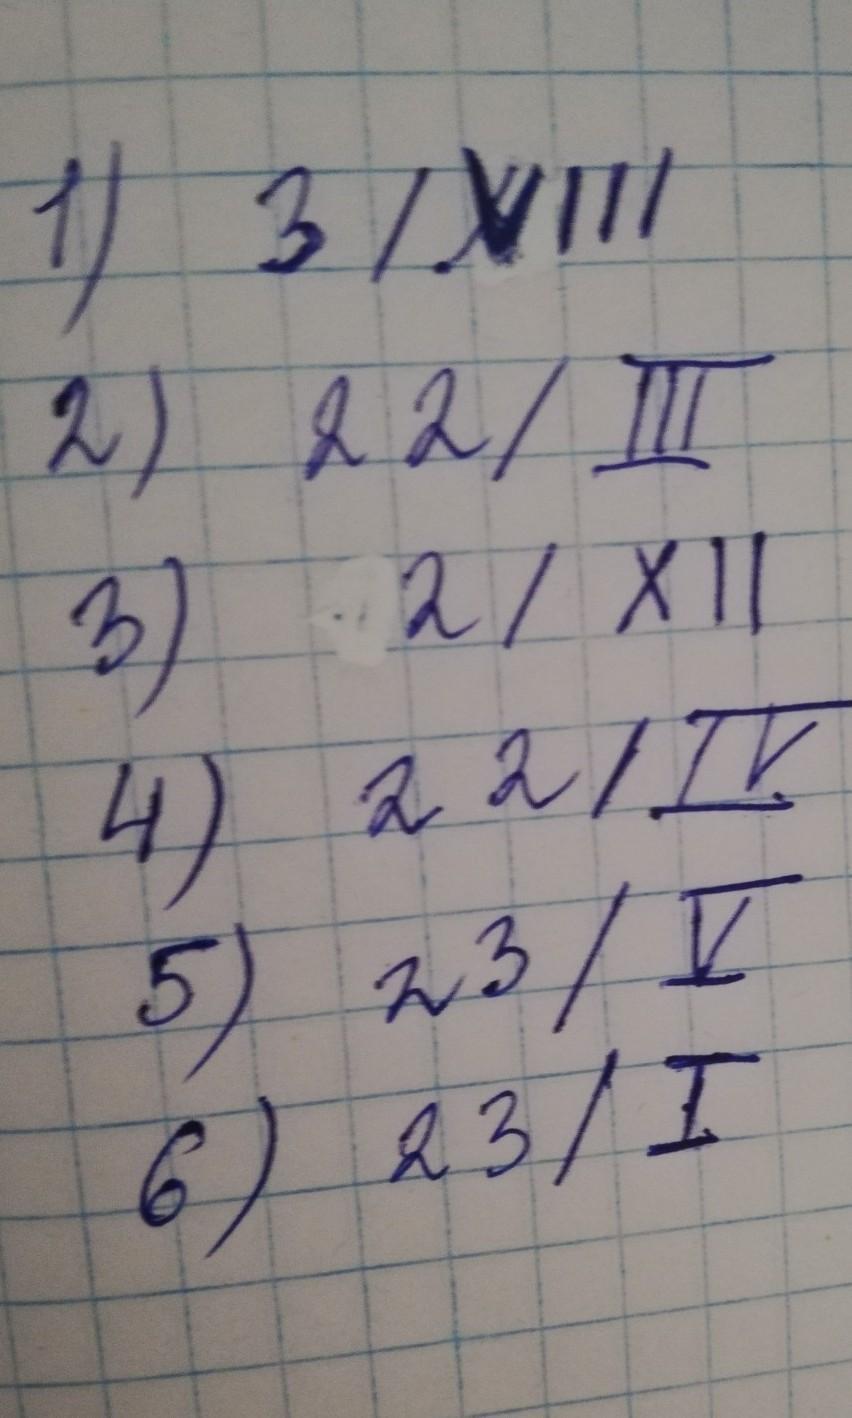 1) 3/XIII
2) 22/III
3) 2/XII
4) 22/IV
5) 23/V
6) 23/I